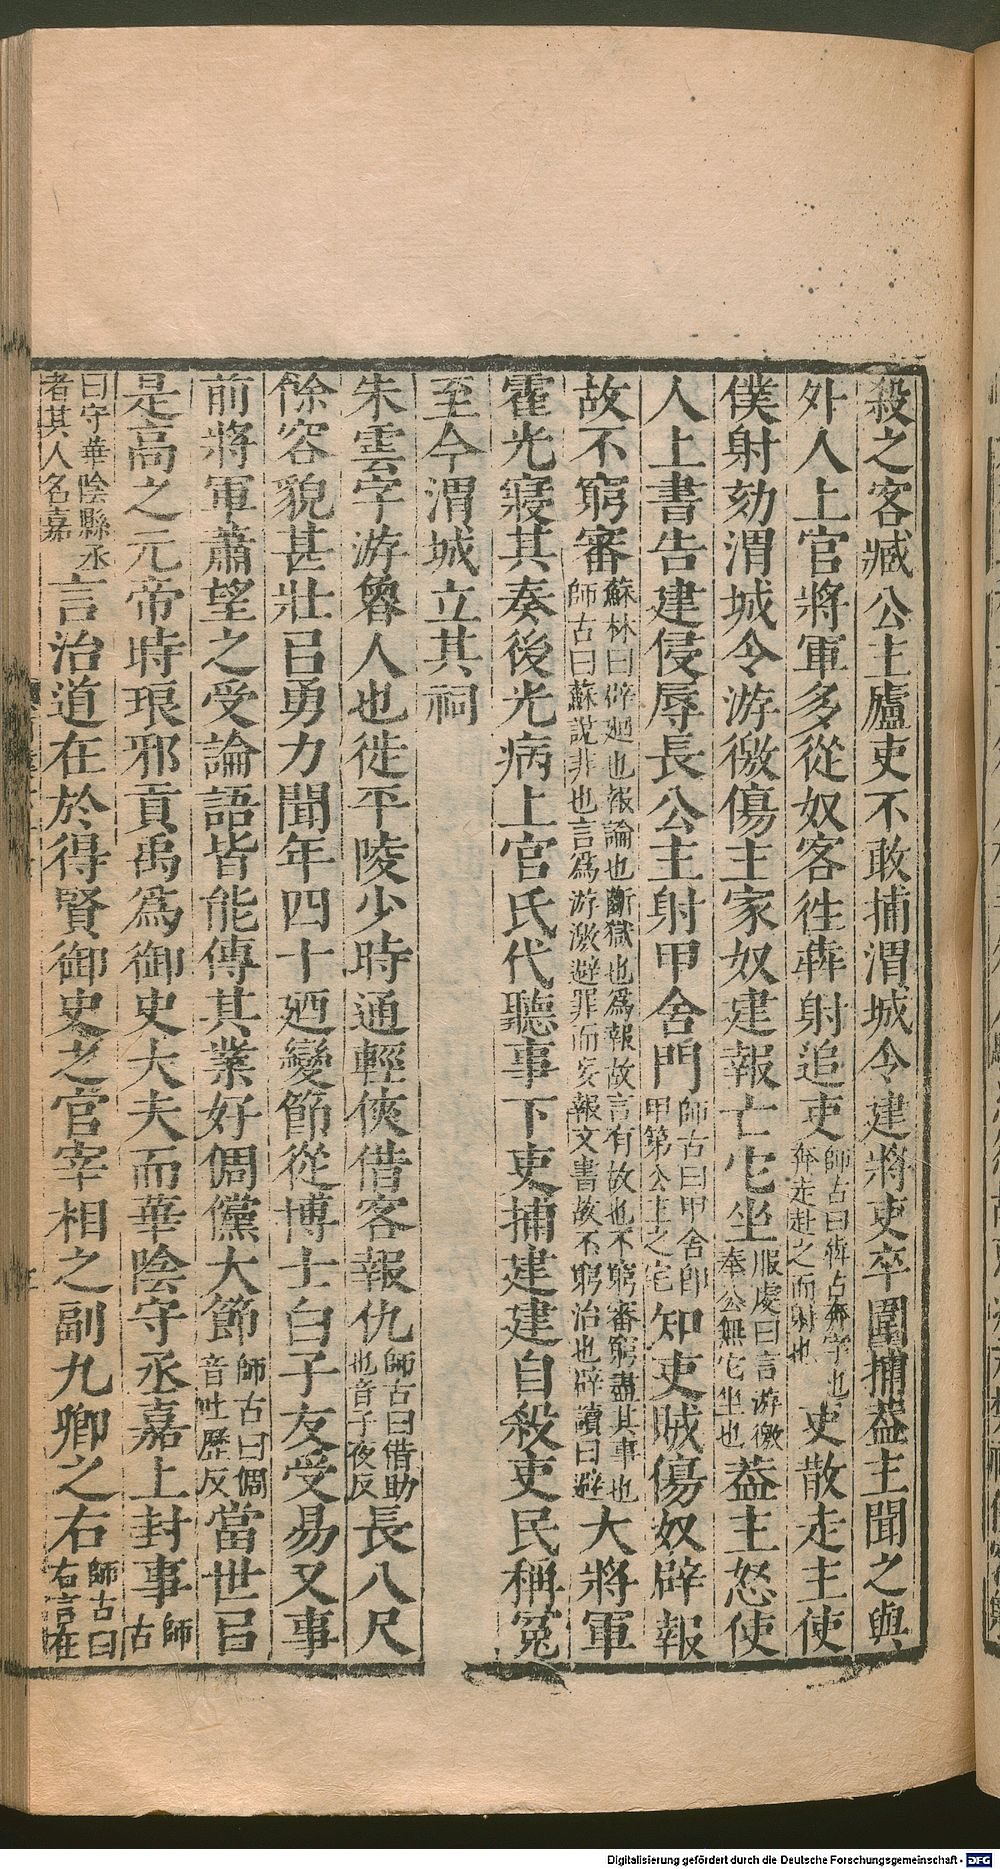 殺之客臧公主廬吏不敢捕渭城令建將吏卒圍捕葢主聞之與
外人上官將軍多從奴客徃犇射追吏師古曰犇古奔字也奔走赴之而射也吏散走主使
僕射劾渭城令游徼傷主家奴建報亡它坐服虔曰言游徼奉公無它坐也葢主怒使
人上書告建侵辱長公主射甲舍門師古曰甲舍卽甲第公主之宅知吏賊傷奴辟報
故不窮審蘇林曰辟廻也報論也斷獄也爲報故言有故也不窮審窮盡其事也師古曰蘇說非也言爲游徼避罪而妄報文書故不窮治也辟讀曰避大將軍
霍光寢其奏後光病上官氏代聽事下吏捕建建自殺吏民稱冤
至今渭城立其祠
朱雲字游魯人也徙平陵少時通輕俠借客報仇師古曰借助也音子夜反長八尺
餘容貌甚壯㠯勇力聞年四十廼變節從博士白子友受易又事
前將軍蕭望之受論語皆能傳其業好倜儻大節師古曰倜音吐歷反當世㠯
是高之元帝時琅邪貢禹爲御史大夫而華陰守丞嘉上封事師古
曰守華陰縣丞者其人名嘉言治道在於得賢御史之官宰相之副九卿之右師古曰右言在
Digitalisierung gefördert durch die Deutsche Forschungsgemeinschaft - DFG